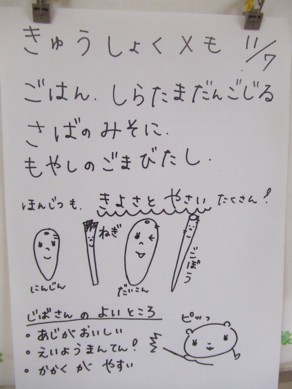 きゅうしょくメも 11/7
ごはん. しらたまだんごじる
さばのみそに.
もやしのごまびたし.
ほんじつも、きよさと やさい たくさん!
ねぎ
ごぼう
にんじん
だいこん
じばさんの よいところ
・あじがおいしい
・えいようまんてん!
・かかくが やすい
ピッッ